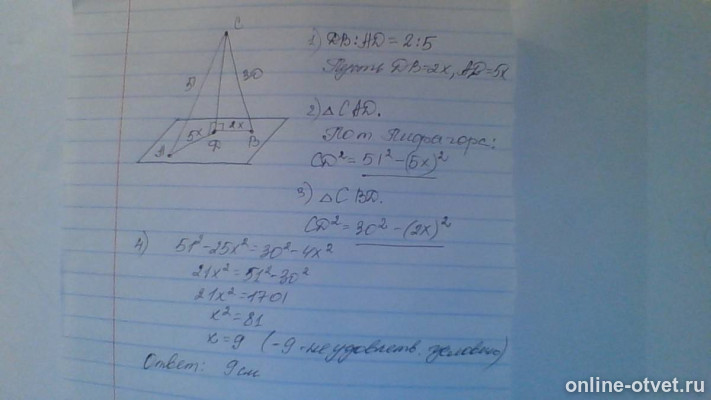 C
51
30
5x
2x
A
D
B
1) DB:AD = 2:5
Пусть DB=2x, AD=5x
2) △CAD.
По т Пифагора:
CD² = 51² - (5x)²
3) △CBD.
CD² = 30² - (2x)²
4) 51² - 25x² = 30² - 4x²
21x² = 51² - 30²
21x² = 1701
x² = 81
x = 9 (-9 - не удовлетв. условию)
Ответ: 9 см
online-otvet.ru